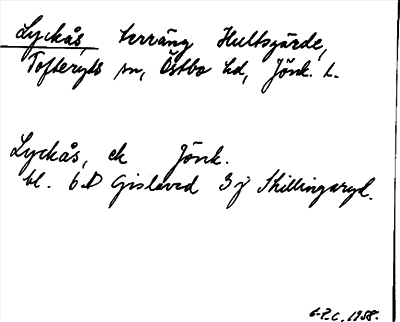 Lyckås, terräng Hultsgärde,
Tofteryds sn, Östbo hd, Jönk. l.
Lyckås, ek Jönk.
bl. 6D Gislaved 3j Skillingaryd.
1958.